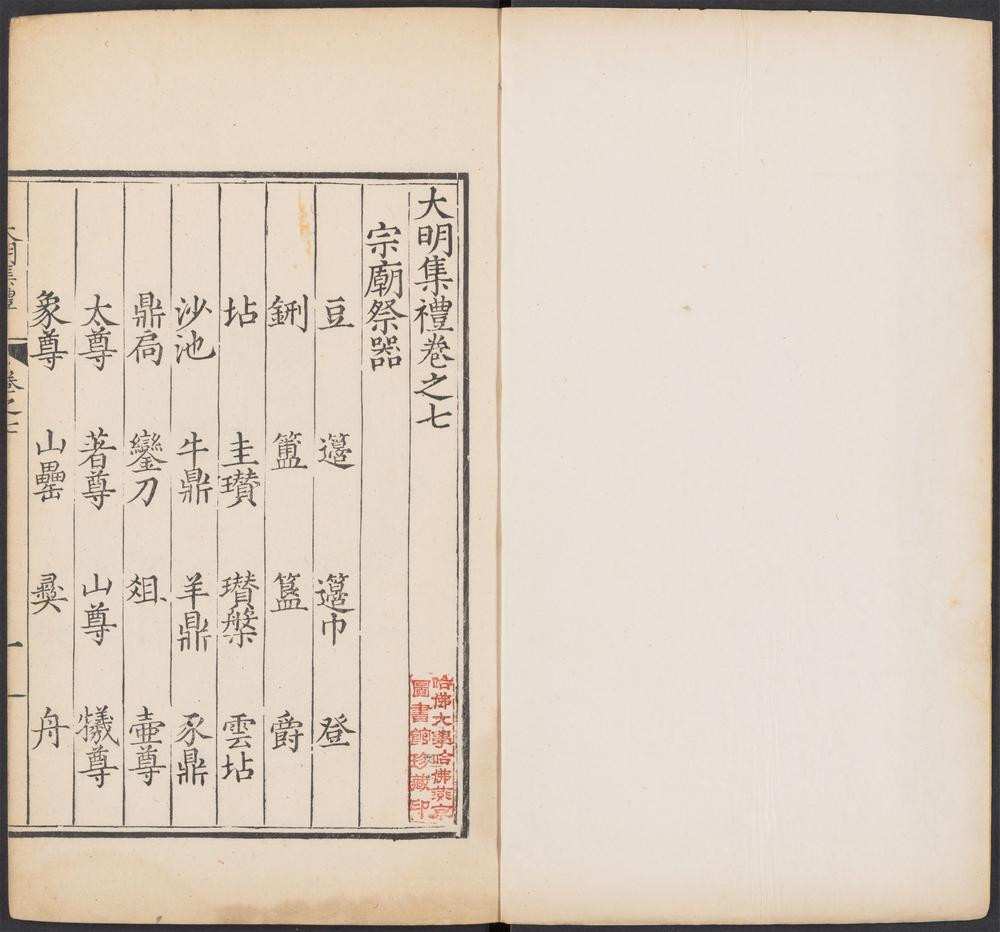 大明集禮卷之七
宗廟祭器
豆 籩 籩巾 登
鉶 簠 簋 爵
坫 圭瓚 瓚槃 雲坫
沙池 牛鼎 羊鼎 豕鼎
鼎扄 鑾刀 俎 壷尊
太尊 著尊 山尊 犧尊
象尊 山罍 彛 舟
大明集禮 卷之七 一
哈佛大學哈佛燕京
圖書館珍藏印